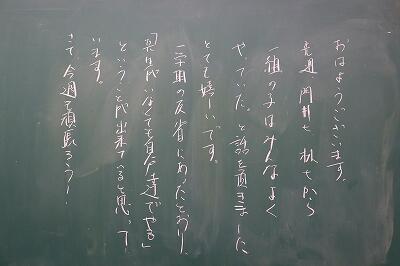 おはようございます。
先週、門井t、秋tから
一組の子はみんなよく
やっていた、と話を頂きました。
とても嬉しいです。
一学期の反省にあったとおり、
「先生がいなくても自分達でやる」
ということが出来ていると思って
います。
さて、今週も頑張ろう!